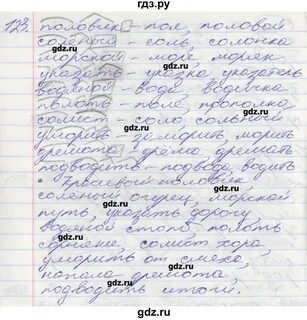 гдз.ру
123. половчек - пол, половой
солёный - соль, солонка
морской - море, моряк
указать - указка, указатель
водяной - вода, водичка
полоть - поле, прополка
солист - соло, сольный
уморить - заморить, морить
дремота - дрёма, дремать
подводить - подвода, водить
Красивый половичек
солёный огурец, морской
путь, указать дорогу,
водяной столб, полоть
сорняки, солист хора,
уморить от смеха,
напала дремота,
подводить итоги.
gdz.ru